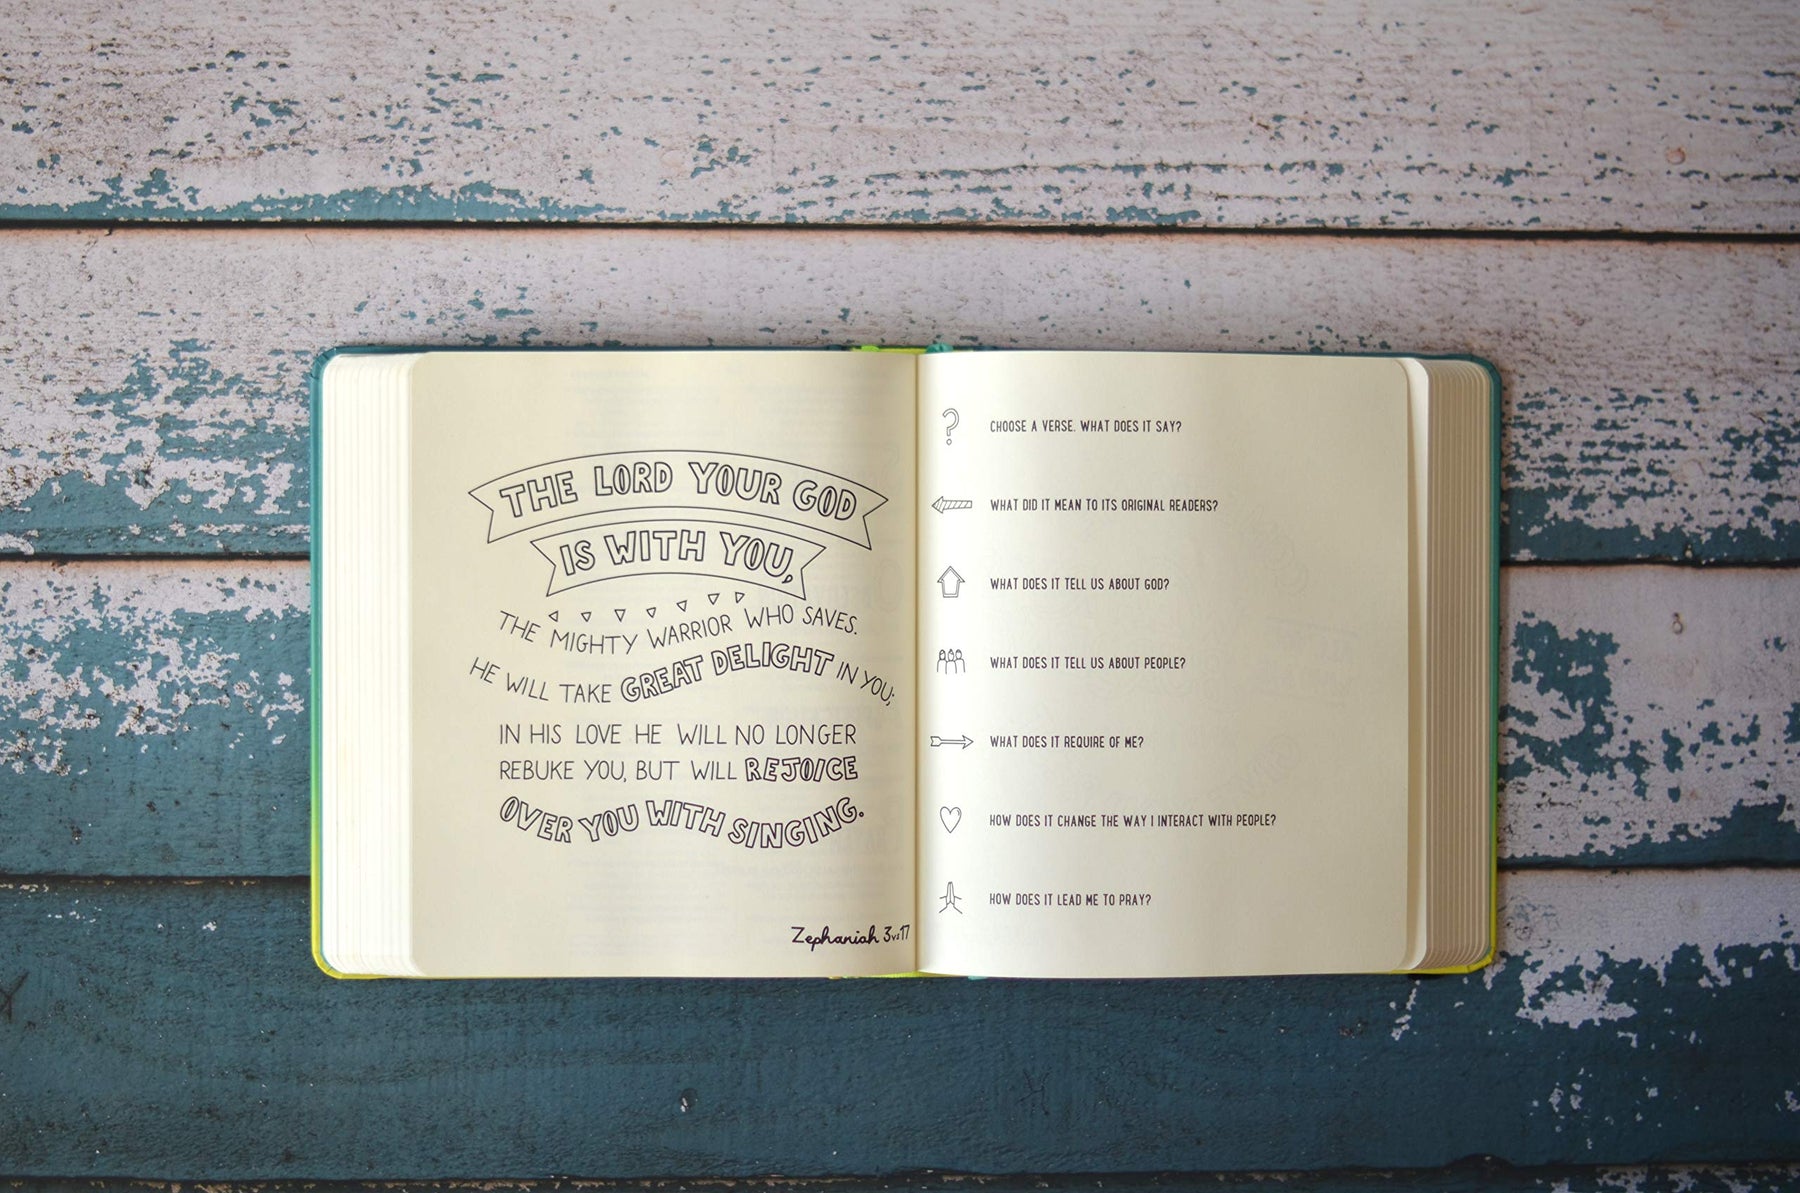 THE LORD YOUR GOD
IS WITH YOU,
THE MIGHTY WARRIOR WHO SAVES.
HE WILL TAKE GREAT DELIGHT IN YOU;
IN HIS LOVE HE WILL NO LONGER
REBUKE YOU, BUT WILL REJOICE
OVER YOU WITH SINGING.
Zephaniah 3vs17
CHOOSE A VERSE. WHAT DOES IT SAY?
WHAT DID IT MEAN TO ITS ORIGINAL READERS?
WHAT DOES IT TELL US ABOUT GOD?
WHAT DOES IT TELL US ABOUT PEOPLE?
WHAT DOES IT REQUIRE OF ME?
HOW DOES IT CHANGE THE WAY I INTERACT WITH PEOPLE?
HOW DOES IT LEAD ME TO PRAY?